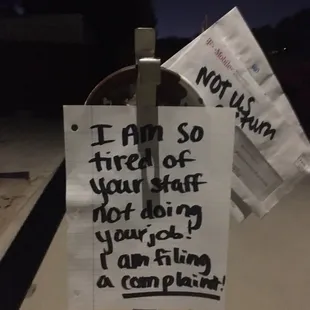 T-Mobile
Not US
turn
I Am so
tired of
your staff
not doing
your job!
I am filing
a complaint!